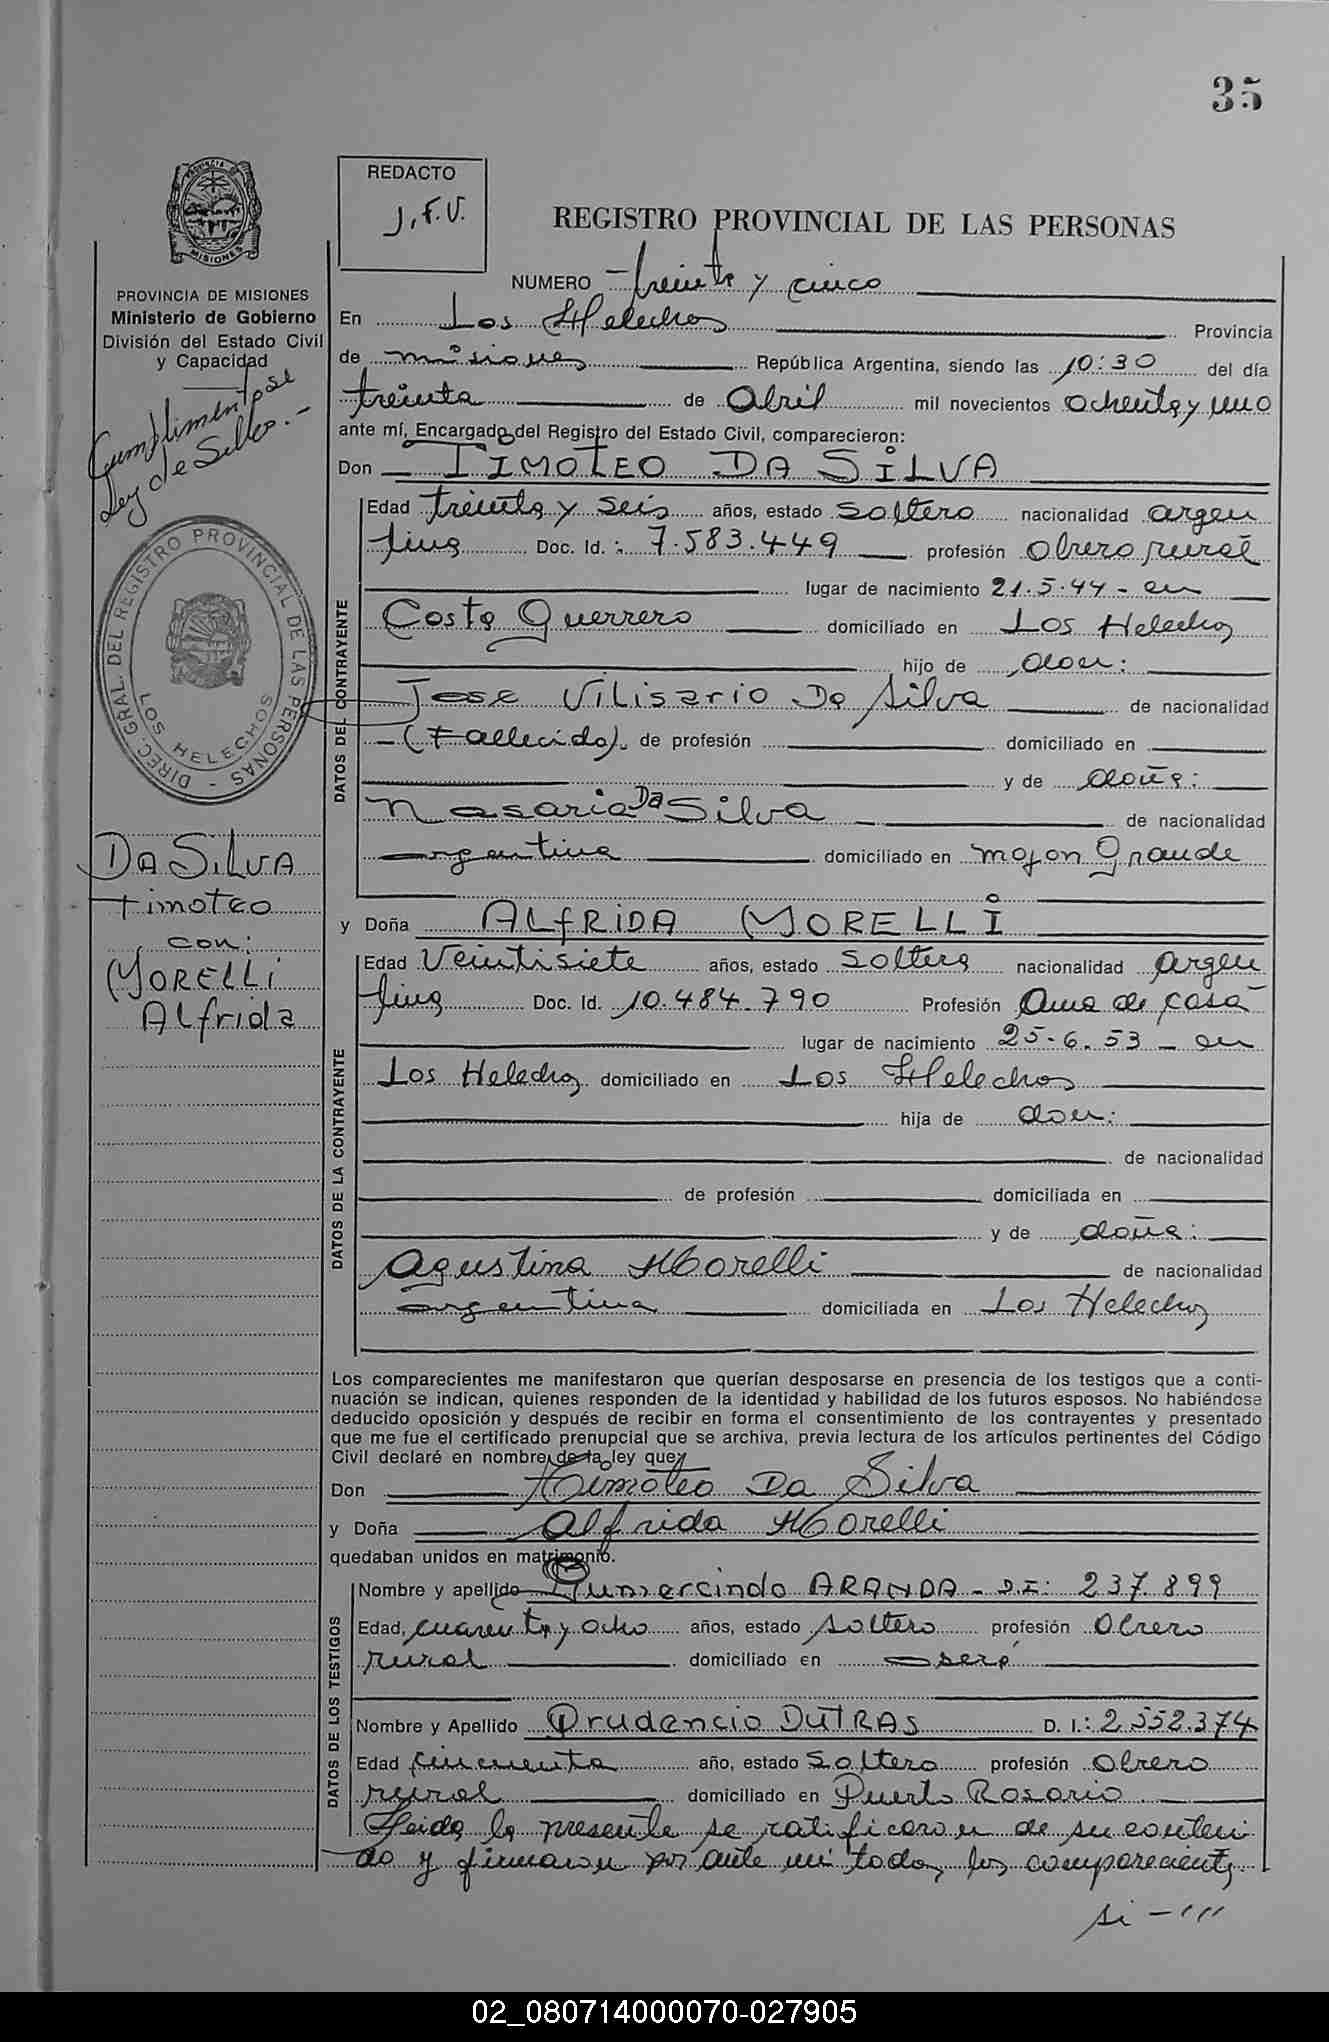 35
REDACTO
J.F.V.
REGISTRO PROVINCIAL DE LAS PERSONAS
NUMERO treinta y cinco
PROVINCIA DE MISIONES
Ministerio de Gobierno
División del Estado Civil
y Capacidad
Cumplimentose
Ley de Sellos.-
DIREC. GRAL. DEL REGISTRO PROVINCIAL DE LAS PERSONAS -
LOS HELECHOS
DA SILVA
timoteo
con:
MORELLI
Alfrida
En Los Helechos Provincia
de misiones República Argentina, siendo las 10:30 del día
treinta de Abril mil novecientos ochenta y uno
ante mí, Encargado del Registro del Estado Civil, comparecieron:
Don TIMOTEO DA SILVA
DATOS DEL CONTRAYENTE
Edad treinta y seis años, estado soltero nacionalidad argen
tina Doc. Id.: 7.583.449 profesión Obrero rural
lugar de nacimiento 21.5.44 - en
Costa Guerrero domiciliado en Los Helechos
hijo de don:
Jose Vilisario Da Silva de nacionalidad
(Fallecido). de profesión domiciliado en
y de doña:
Nasaria Da Silva de nacionalidad
argentina domiciliado en mojon Grande
y Doña ALFRIDA MORELLI
DATOS DE LA CONTRAYENTE
Edad Veintisiete años, estado soltera nacionalidad argen
tina Doc. Id. 10.484.790 Profesión Ama de casa
lugar de nacimiento 25-6.53 - en
Los Helechos domiciliado en Los Helechos
hija de don:
de nacionalidad
de profesión domiciliada en
y de doña:
Agustina Morelli de nacionalidad
argentina domiciliada en Los Helechos
Los comparecientes me manifestaron que querían desposarse en presencia de los testigos que a conti-
nuación se indican, quienes responden de la identidad y habilidad de los futuros esposos. No habiéndose
deducido oposición y después de recibir en forma el consentimiento de los contrayentes y presentado
que me fue el certificado prenupcial que se archiva, previa lectura de los artículos pertinentes del Código
Civil declaré en nombre de la ley que
Don Timoteo Da Silva
y Doña Alfrida Morelli
quedaban unidos en matrimonio.
DATOS DE LOS TESTIGOS
Nombre y apellido Gumercindo ARANDA - D.I: 237.899
Edad cuarenta y ocho años, estado soltero profesión Obrero
rural domiciliado en
Nombre y Apellido Prudencio DUTRAS D. I.: 2.552.374
Edad cincuenta año, estado soltero profesión Obrero
rural domiciliado en Puerto Rosario
Leida la presente se ratificaron de su conteni
do y firmaron por ante mi todos los comparecientes
02_080714000070-027905